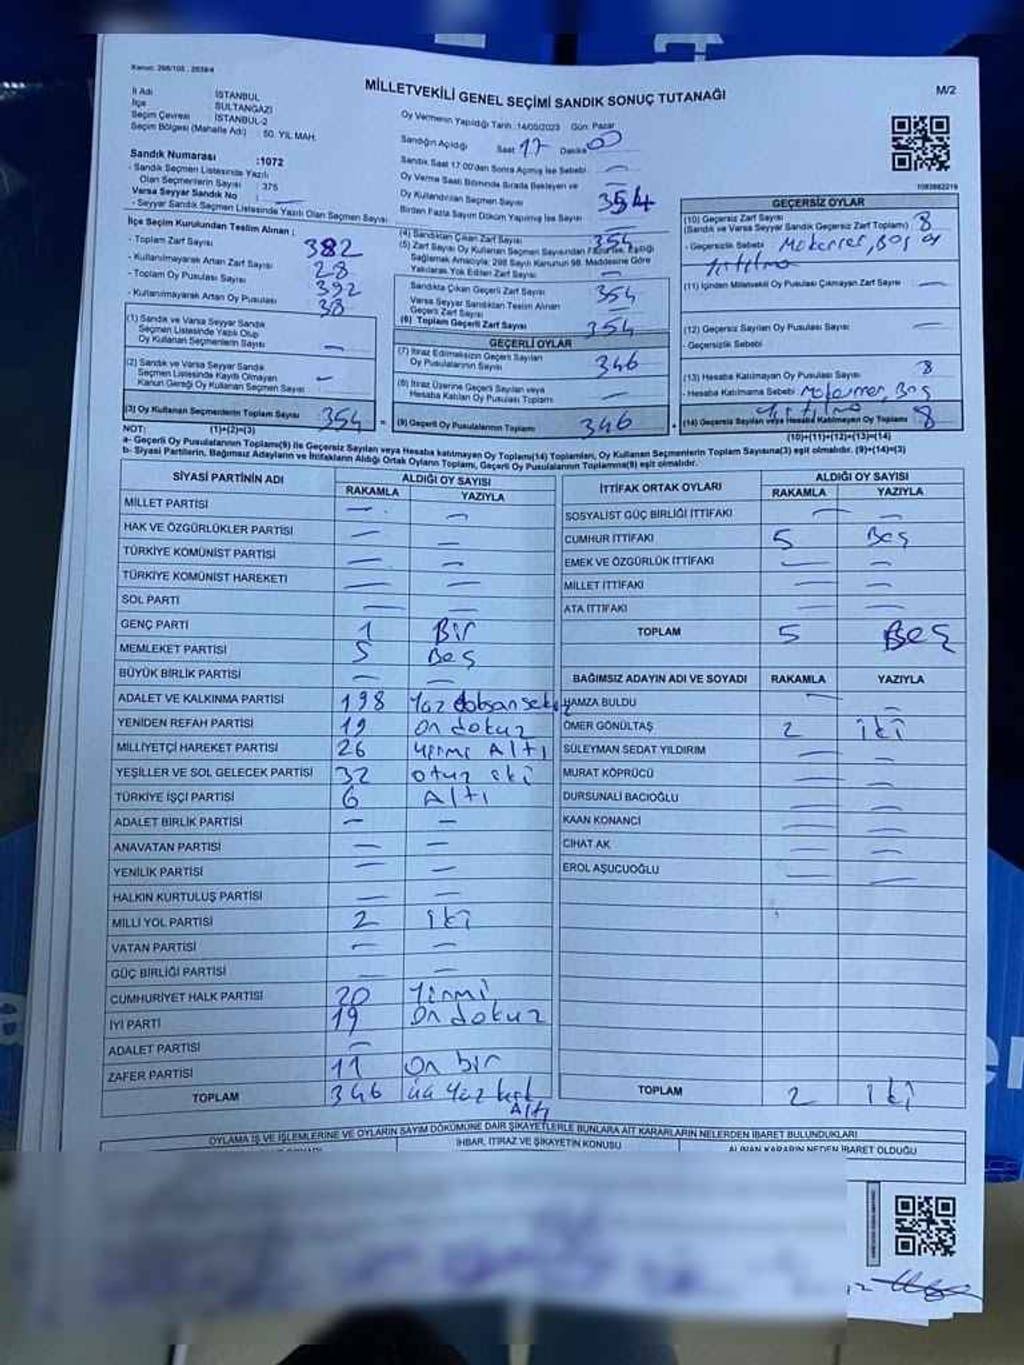 Kanun: 298/105 , 2839/4
MİLLETVEKİLİ GENEL SEÇİMİ SANDIK SONUÇ TUTANAĞI
M/2
İl Adı : İSTANBUL
İlçe : SULTANGAZİ
Seçim Çevresi : İSTANBUL-2
Seçim Bölgesi (Mahalle Adı) : 50. YIL MAH.
Sandık Numarası :1072
- Sandık Seçmen Listesinde Yazılı
Olan Seçmenlerin Sayısı : 375
Varsa Seyyar Sandık No :
- Seyyar Sandık Listesinde Yazılı Olan Seçmen Sayısı
Oy Vermenin Yapıldığı Tarih :14/05/2023 Gün: Pazar
Sandığın Açıldığı Saat 17 Dakika 00
Sandık Saat 17.00'den Sonra Açılmış İse Sebebi —
Oy Verme Saati Bitiminde Sırada Bekleyen ve
Oy Kullandırılan Seçmen Sayısı 354
Birden Fazla Sayım Döküm Yapılmış İse Sayısı
1083682219
İlçe Seçim Kurulundan Teslim Alınan :
- Toplam Zarf Sayısı 382
- Kullanılmayarak Artan Zarf Sayısı 28
- Toplam Oy Pusulası Sayısı 392
- Kullanılmayarak Artan Oy Pusulası 38
(1) Sandık ve Varsa Seyyar Sandık
Seçmen Listesinde Yazılı Olup
Oy Kullanan Seçmenlerin Sayısı —
(2) Sandık ve Varsa Seyyar Sandık
Seçmen Listesinde Kayıtlı Olmayan
Kanun Gereği Oy Kullanan Seçmen Sayısı —
(3) Oy Kullanan Seçmenlerin Toplam Sayısı 354
(4) Sandıktan Çıkan Zarf Sayısı 354
(5) Zarf Sayısı Oy Kullanan Seçmen Sayısından Fazla İse, Eşitliği
Sağlamak Amacıyla; 298 Sayılı Kanunun 98. Maddesine Göre
Yakılarak Yok Edilen Zarf Sayısı —
Sandıkta Çıkan Geçerli Zarf Sayısı 354
Varsa Seyyar Sandıktan Teslim Alınan
Geçerli Zarf Sayısı —
(6) Toplam Geçerli Zarf Sayısı 354
GEÇERLİ OYLAR
(7) İtiraz Edilmeksizin Geçerli Sayılan
Oy Pusulalarının Sayısı 346
(8) İtiraz Üzerine Geçerli Sayılan veya
Hesaba Katılan Oy Pusulası Toplamı —
= (9) Geçerli Oy Pusulalarının Toplamı 346
GEÇERSİZ OYLAR
(10) Geçersiz Zarf Sayısı 8
(Sandık ve Varsa Seyyar Sandık Geçersiz Zarf Toplamı)
- Geçersizlik Sebebi Mükerrer, Boş oy
Yırtılmış
(11) İçinden Milletvekili Oy Pusulası Çıkmayan Zarf Sayısı —
(12) Geçersiz Sayılan Oy Pusulası Sayısı —
- Geçersizlik Sebebi
(13) Hesaba Katılmayan Oy Pusulası Sayısı 8
- Hesaba Katılmama Sebebi Mükerrer, Boş
Yırtılmış
+ (14) Geçersiz Sayılan veya Hesaba Katılmayan Oy Toplamı 8
NOT: (1)+(2)=(3)
(10)+(11)+(12)+(13)=(14)
a- Geçerli Oy Pusulalarının Toplamı(9) İle Geçersiz Sayılan veya Hesaba katılmayan Oy Toplamı(14) Toplamları, Oy Kullanan Seçmenlerin Toplam Sayısına(3) eşit olmalıdır. (9)+(14)=(3)
b- Siyasi Partilerin, Bağımsız Adayların ve İttifakların Aldığı Ortak Oyların Toplamı, Geçerli Oy Pusulalarının Toplamına(9) eşit olmalıdır.
SİYASİ PARTİNİN ADI ALDIĞI OY SAYISI
RAKAMLA YAZIYLA
MİLLET PARTİSİ — —
HAK VE ÖZGÜRLÜKLER PARTİSİ — —
TÜRKİYE KOMÜNİST PARTİSİ — —
TÜRKİYE KOMÜNİST HAREKETİ — —
SOL PARTİ — —
GENÇ PARTİ 1 Bir
MEMLEKET PARTİSİ 5 Beş
BÜYÜK BİRLİK PARTİSİ — —
ADALET VE KALKINMA PARTİSİ 198 Yüz doksan sekiz
YENİDEN REFAH PARTİSİ 19 on dokuz
MİLLİYETÇİ HAREKET PARTİSİ 26 yirmi Altı
YEŞİLLER VE SOL GELECEK PARTİSİ 32 otuz iki
TÜRKİYE İŞÇİ PARTİSİ 6 Altı
ADALET BİRLİK PARTİSİ — —
ANAVATAN PARTİSİ — —
YENİLİK PARTİSİ — —
HALKIN KURTULUŞ PARTİSİ — —
MİLLİ YOL PARTİSİ 2 iki
VATAN PARTİSİ — —
GÜÇ BİRLİĞİ PARTİSİ — —
CUMHURİYET HALK PARTİSİ 20 Yirmi
İYİ PARTİ 19 On dokuz
ADALET PARTİSİ —
ZAFER PARTİSİ 11 On bir
TOPLAM 346 üç yüz kırk Altı
İTTİFAK ORTAK OYLARI ALDIĞI OY SAYISI
RAKAMLA YAZIYLA
SOSYALİST GÜÇ BİRLİĞİ İTTİFAKI — —
CUMHUR İTTİFAKI 5 Beş
EMEK VE ÖZGÜRLÜK İTTİFAKI — —
MİLLET İTTİFAKI — —
ATA İTTİFAKI — —
TOPLAM 5 Beş
BAĞIMSIZ ADAYIN ADI VE SOYADI RAKAMLA YAZIYLA
HAMZA BULDU — —
ÖMER GÖNÜLTAŞ 2 iki
SÜLEYMAN SEDAT YILDIRIM — —
MURAT KÖPRÜCÜ — —
DURSUNALİ BACIOĞLU — —
KAAN KONANCİ — —
CİHAT AK — —
EROL AŞUCUOĞLU — —
TOPLAM 2 iki
OYLAMA İŞ VE İŞLEMLERİNE VE OYLARIN SAYIM DÖKÜMÜNE DAİR ŞİKAYETLERLE BUNLARA AİT KARARLARIN NELERDEN İBARET BULUNDUKLARI
İHBAR, İTİRAZ VE ŞİKAYETİN KONUSU
ALINAN KARARIN NEDEN İBARET OLDUĞU